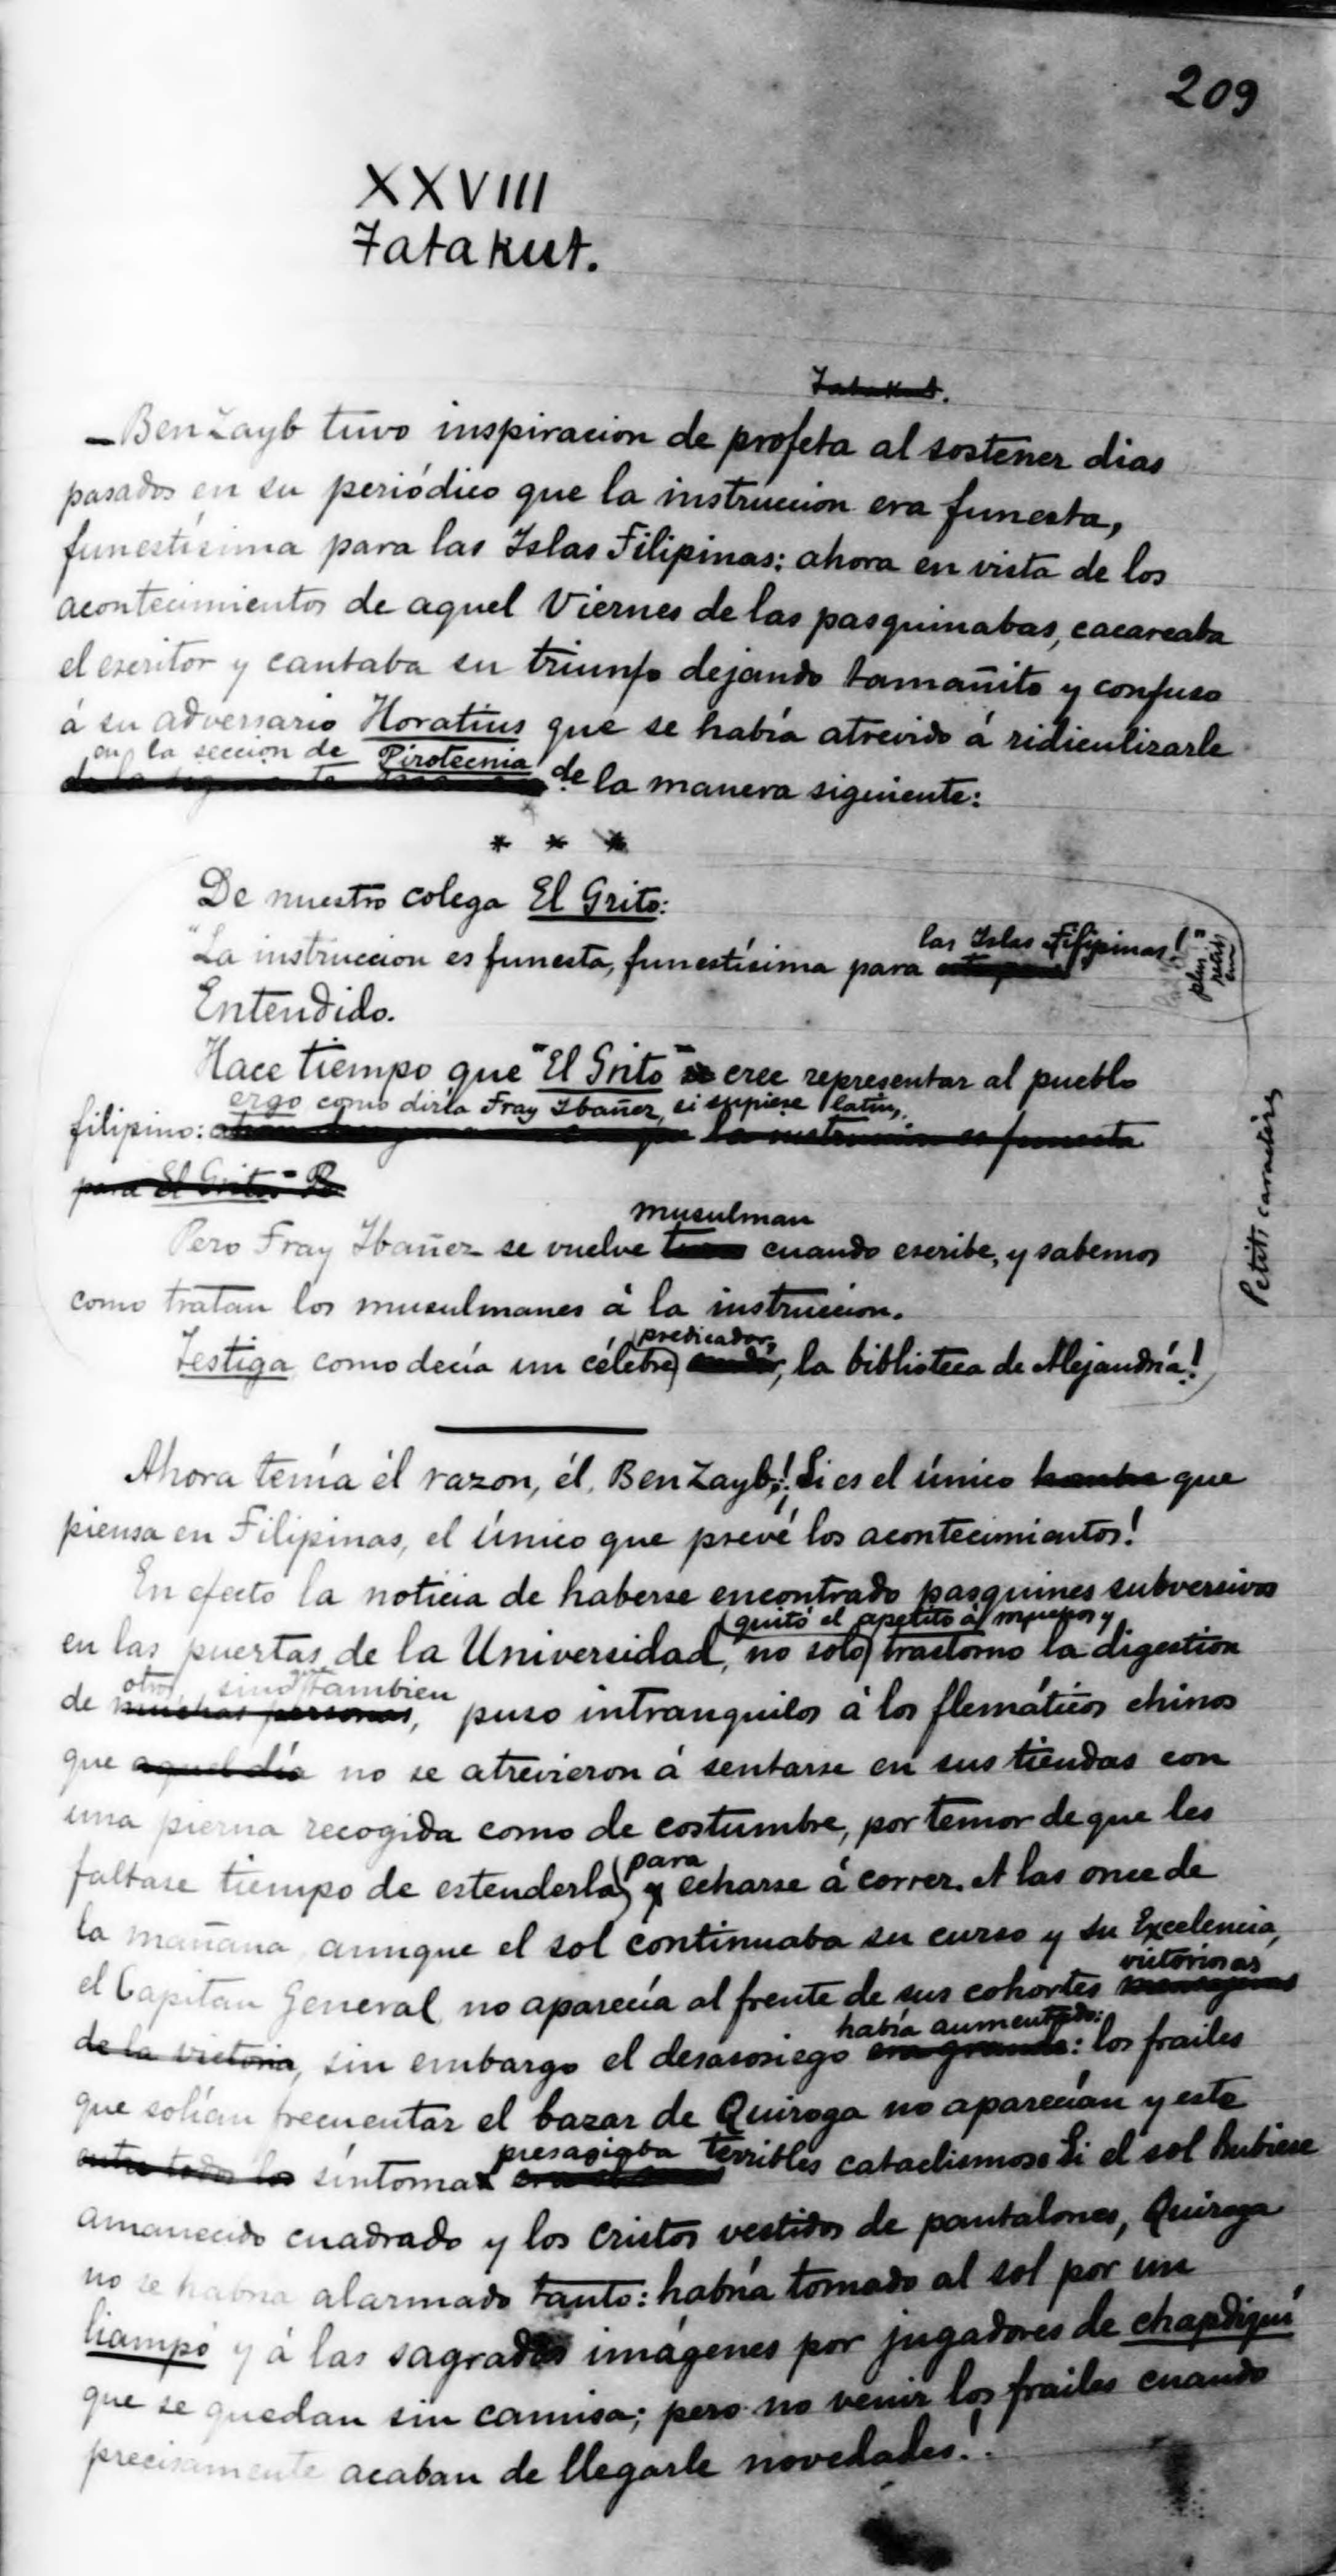 209
XXVIII
Tatakut.
Tatakut.
— Ben Zayb tuvo inspiracion de profeta al sostener dias
pasados en su periódico que la instruccion era funesta,
funestísima para las Islas Filipinas: ahora en vista de los
acontecimientos de aquel Viernes de las pasquinabas, cacareaba
el escritor y cantaba su triunfo dejando tamañito y confuso
á su adversario Horatius que se había atrevido á ridiculizarle
en la seccion de Pirotecnia
de la manera siguiente:
* * *
De nuestro colega El Grito:
las Islas Filipinas!"
"La instruccion es funesta, funestísima para
plus retiré
Entendido.
Hace tiempo que "El Grito" se cree representar al pueblo
ergo como diría Fray Ibañez, si supiese latin,
filipino: la instruccion es funesta
para El Grito
musulman
Pero Fray Ibañez se vuelve cuando escribe, y sabemos
como tratan los musulmanes á la instruccion.
predicador,
Testiga como decía un célebre, la biblioteca de Alejandría!
Petits caractères
Ahora tenía él razon, él, Ben Zayb! Si es el único hombre que
piensa en Filipinas, el único que prevé los acontecimientos!
En efecto la noticia de haberse encontrado pasquines subversivos
quitó el apetito á muchos y
en las puertas de la Universidad, no solo trastorno la digestion
otros, sino que tambien
de muchas personas, puso intranquilos á los flemáticos chinos
que aquel día no se atrevieron á sentarse en sus tiendas con
una pierna recogida como de costumbre, por temor de que les
para
faltase tiempo de estenderla y echarse á correr. A las once de
la mañana, aunque el sol continuaba su curso y su Excelencia,
victoriosas
el Capitan General, no aparecía al frente de sus cohortes
había aumentado:
de la victoria, sin embargo el desasosiego era grande: los frailes
que solían frecuentar el bazar de Quiroga no aparecían y este
presagiaba
entre todos los síntoma terribles cataclismos. Si el sol hubiese
amanecido cuadrado y los Cristos vestidos de pantalones, Quiroga
no se habría alarmado tanto: habría tomado al sol por un
liampó y á las sagradas imágenes por jugadores de chapdiquí
que se quedan sin camisa; pero no venir los frailes cuando
precisamente acaban de llegarle novedades!